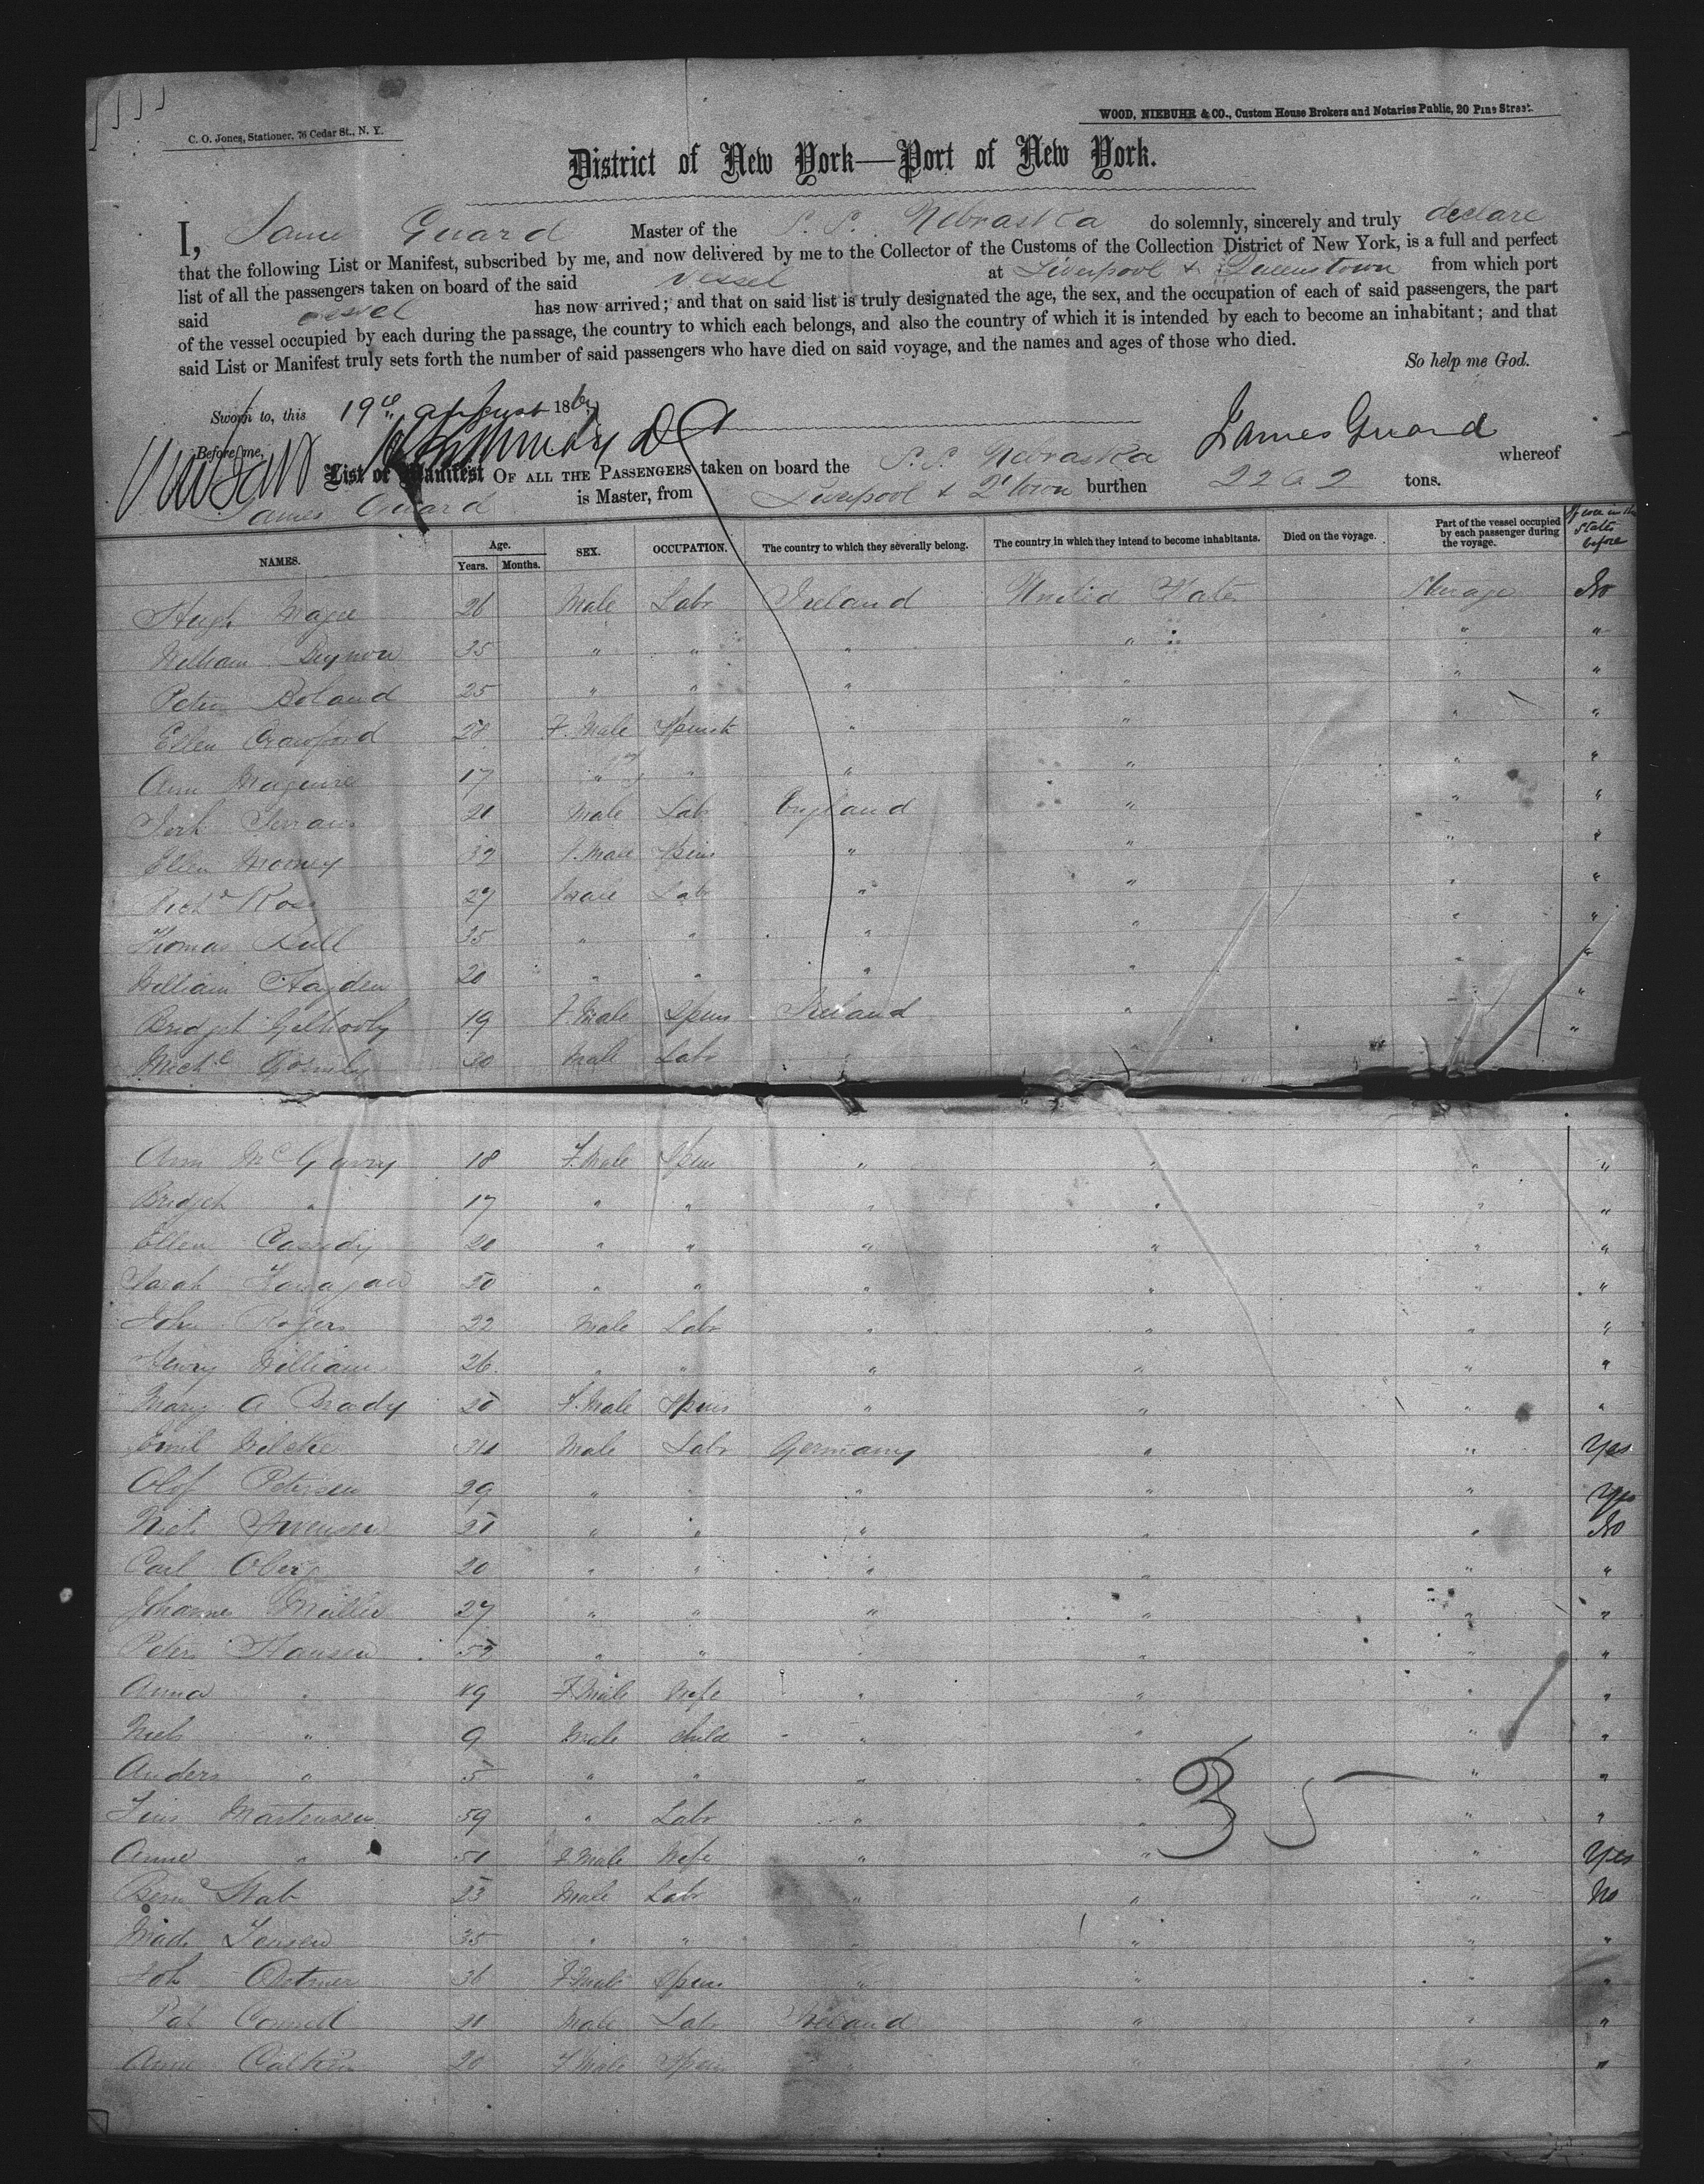 C. O. Jones, Stationer, 76 Cedar St., N. Y.
WOOD, NIEBUHR & CO., Custom House Brokers and Notaries Public, 20 Pine Street.
District of New York—Port of New York.
I, James Guard Master of the S. S. Nebraska do solemnly, sincerely and truly declare
that the following List or Manifest, subscribed by me, and now delivered by me to the Collector of the Customs of the Collection District of New York, is a full and perfect
list of all the passengers taken on board of the said Vessel at Liverpool & Queenstown from which port
said vessel has now arrived; and that on said list is truly designated the age, the sex, and the occupation of each of said passengers, the part
of the vessel occupied by each during the passage, the country to which each belongs, and also the country of which it is intended by each to become an inhabitant; and that
said List or Manifest truly sets forth the number of said passengers who have died on said voyage, and the names and ages of those who died.
So help me God.
Sworn to, this 19th August 186
Before me, James Guard
List or Manifest OF ALL THE PASSENGERS taken on board the S. S. Nebraska whereof
James Guard is Master, from Liverpool & Q'town burthen 2262 tons.
NAMES. Age. Years. Months. SEX. OCCUPATION. The country to which they severally belong. The country in which they intend to become inhabitants. Died on the voyage. Part of the vessel occupied by each passenger during the voyage. If ever in the States before
Hugh Magee 26 Male Labr Ireland United States Steerage No
William 35 " " " " " "
Peter Boland 25 " " " " " "
Ellen Crawford 28 F. Male Spinst " " " "
Ann Maguire 17 " " " " " "
21 Male Labr England " " "
Ellen 32 F. Male Spins " " " "
Richd Rose 27 Male Labr " " " "
Thomas 35 " " " " " "
William Hayden 20 " " " " " "
Bridget 19 F. Male Spins Ireland " " "
Michl Gormly 30 Male Labr
Ann McGarry 18 F. Male Spins " " " "
Bridget " 17 " " " " " "
Ellen Cassidy 20 " " " " " "
Sarah 20 " " " " " "
John Rogers 22 Male Labr " " " "
Henry Williams 26 " " " " " "
Mary A Brady 20 F. Male Spins " " " "
Emil 31 Male Labr Germany " " Yes
Olof Petersen 29 " " " " " Yes
21 " " " " " No
Carl Oberg 20 " " " " " "
Johannes Müller 27 " " " " " "
Peter Hansen 52 " " " " " "
Anna " 49 F. Male Wife " " " "
Niels " 9 Male Child " " " "
Anders " 5 " " " " " "
Jens Martensen 59 " Labr " " " "
Anne " 51 F. Male Wife " " " Yes
23 Male Labr " " " No
Mads Jensen 35 " " " " " "
Joh 36 F. Male Spins " " " "
Pat Connell 21 Male Labr Ireland " " "
Ann 20 F. Male Spins " " "
35